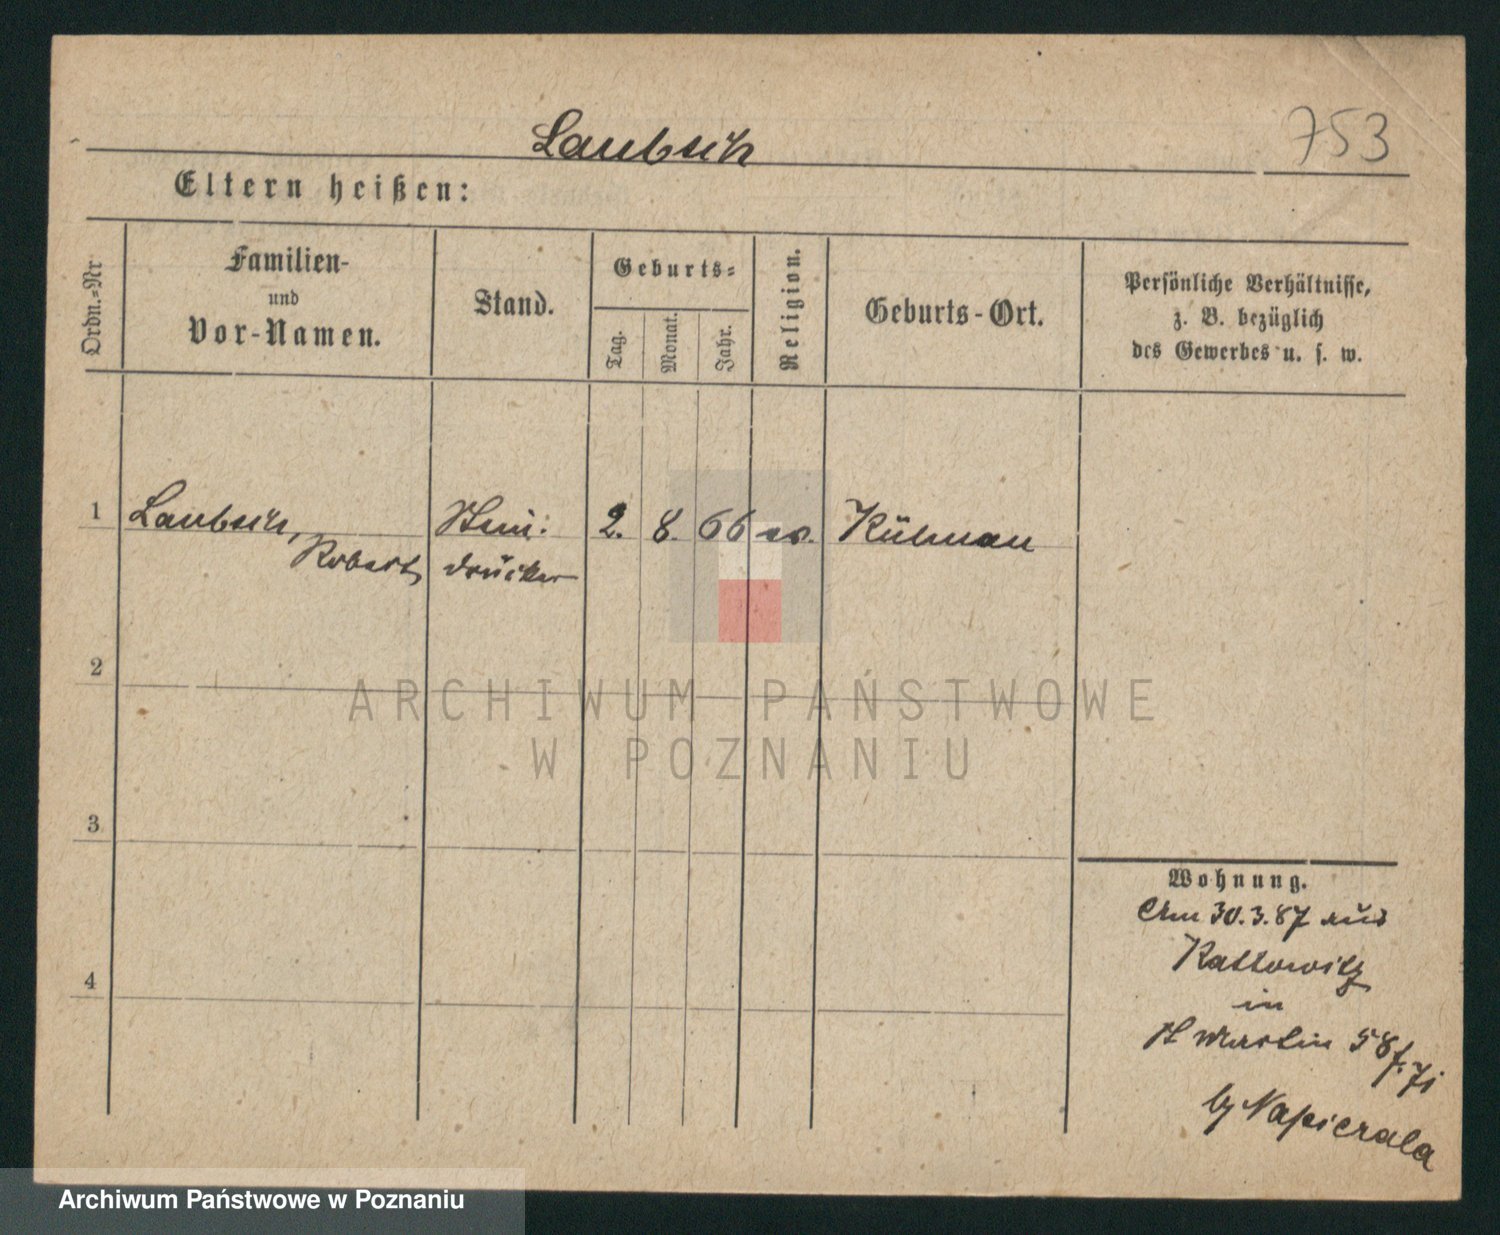 Laubsch
753
Eltern heißen:
Ordn.=Nr
Familien-
und
Vor-Namen.
Stand.
Geburts=
Tag.
Monat.
Jahr.
Religion.
Geburts-Ort.
Persönliche Verhältnisse,
z. B. bezüglich
des Gewerbes u. s. w.
1 Laubsch, 2. 8. 66 ev.
Robert drucker
2
3
4
Wohnung.
Am 30.3.87 aus
Kattowitz
in
St Martin 58
Napierala
ARCHIWUM PAŃSTWOWE
W POZNANIU
Archiwum Państwowe w Poznaniu